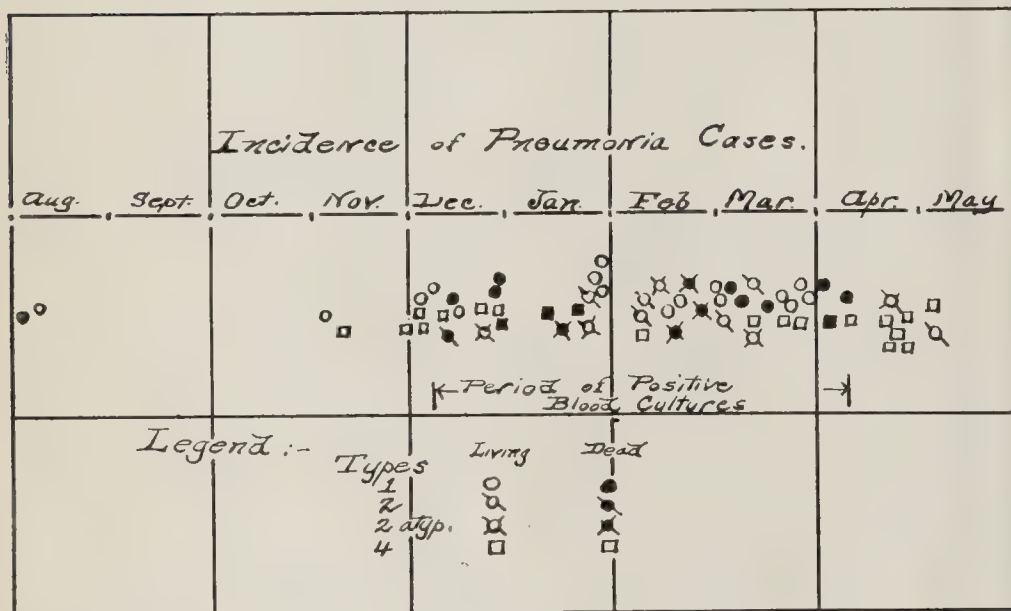 Incidence of Pneumonia Cases.
Aug. Sept. Oct. Nov. Dec. Jan. Feb Mar. Apr. May
Period of Positive
Blood Cultures
Legend :-
Types Living Dead
1
2
2 atyp.
4